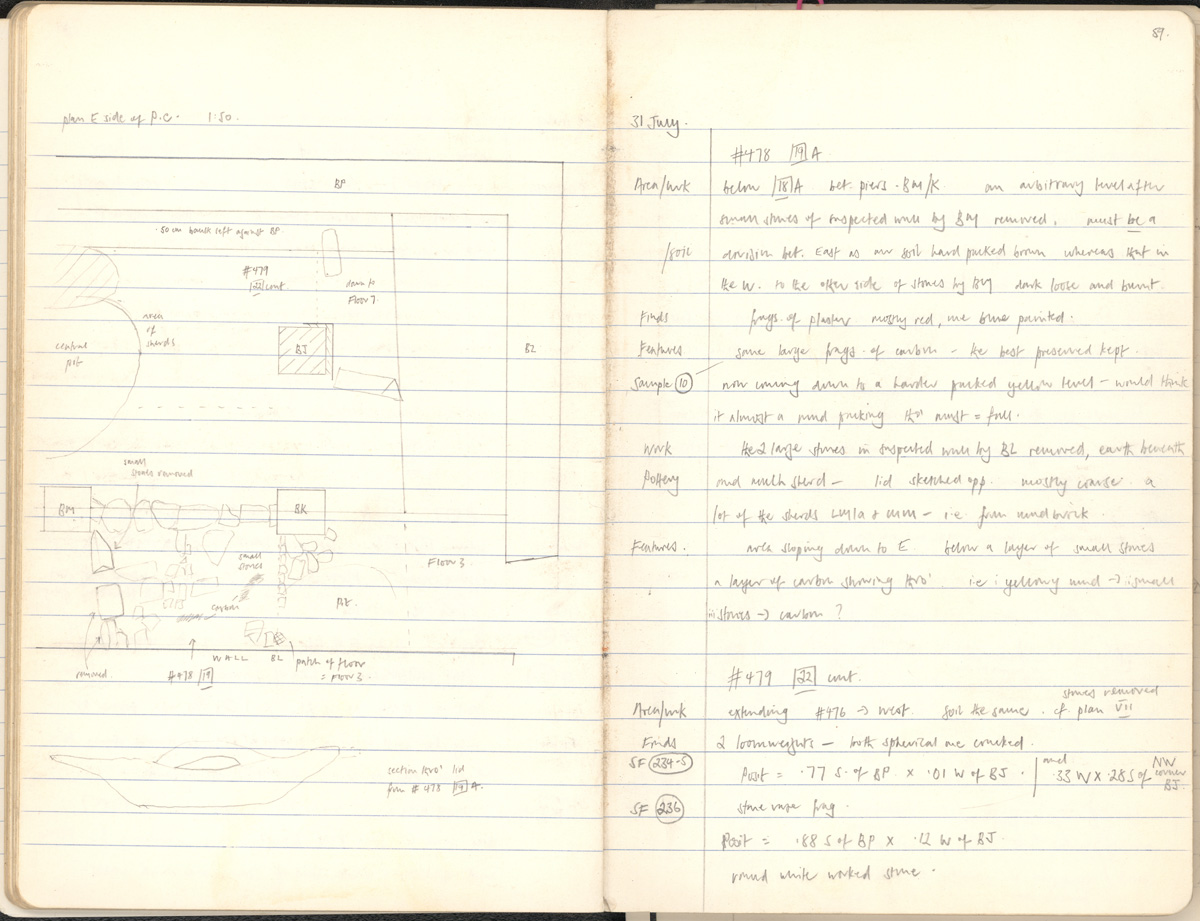 plan E side of P.C. 1:50.
BP
.50 cm baulk left against BP
#479
[22] cont
down to
Floor 7.
area
of
sherds
central
pit
BJ
BZ
small
stones removed
BM
BK
small
stones
Floor 3.
carbon
WALL BL
patch of floor
= Floor 3.
removed
#478 [19]
section thro' lid
from #478 [19] A.
89.
31 July.
#478 [19] A
Area/wk below [18] A bet. piers BM/K. an arbitrary level after
small stones of suspected wall by BM removed. must be a
/soil division bet. East as our soil hard packed brown whereas that in
the W. to the other side of stones by BM dark loose and burnt.
Finds frags. of plaster mostly red, one blue painted.
Features some large frags. of carbon – the best preserved kept.
Sample (10) now coming down to a harder packed yellow level – would think
it almost a mud packing tho' must = fall.
Work the 2 large stones in suspected wall by BL removed, earth beneath
Pottery and sherd – lid sketched opp. mostly coarse. a
lot of the sherds LMIa & MM – i.e. from mudbrick.
Features. area sloping down to E. below a layer of small stones
a layer of carbon showing thro'. i.e. i yellowy mud → ii small
stones → iii carbon?
#479 [22] cont.
stones removed
Area/wk extending #476 → west. soil the same. cf. plan VII
Finds 2 loomweights – both spherical one cracked.
SF (234-5) Posit = .77 S. of BP. x .01 W of BJ. and .33 W x .28 S of NW corner BJ.
SF (236) stone vase frag.
Posit = .88 S of BP x .12 W of BJ.
round white worked stone.